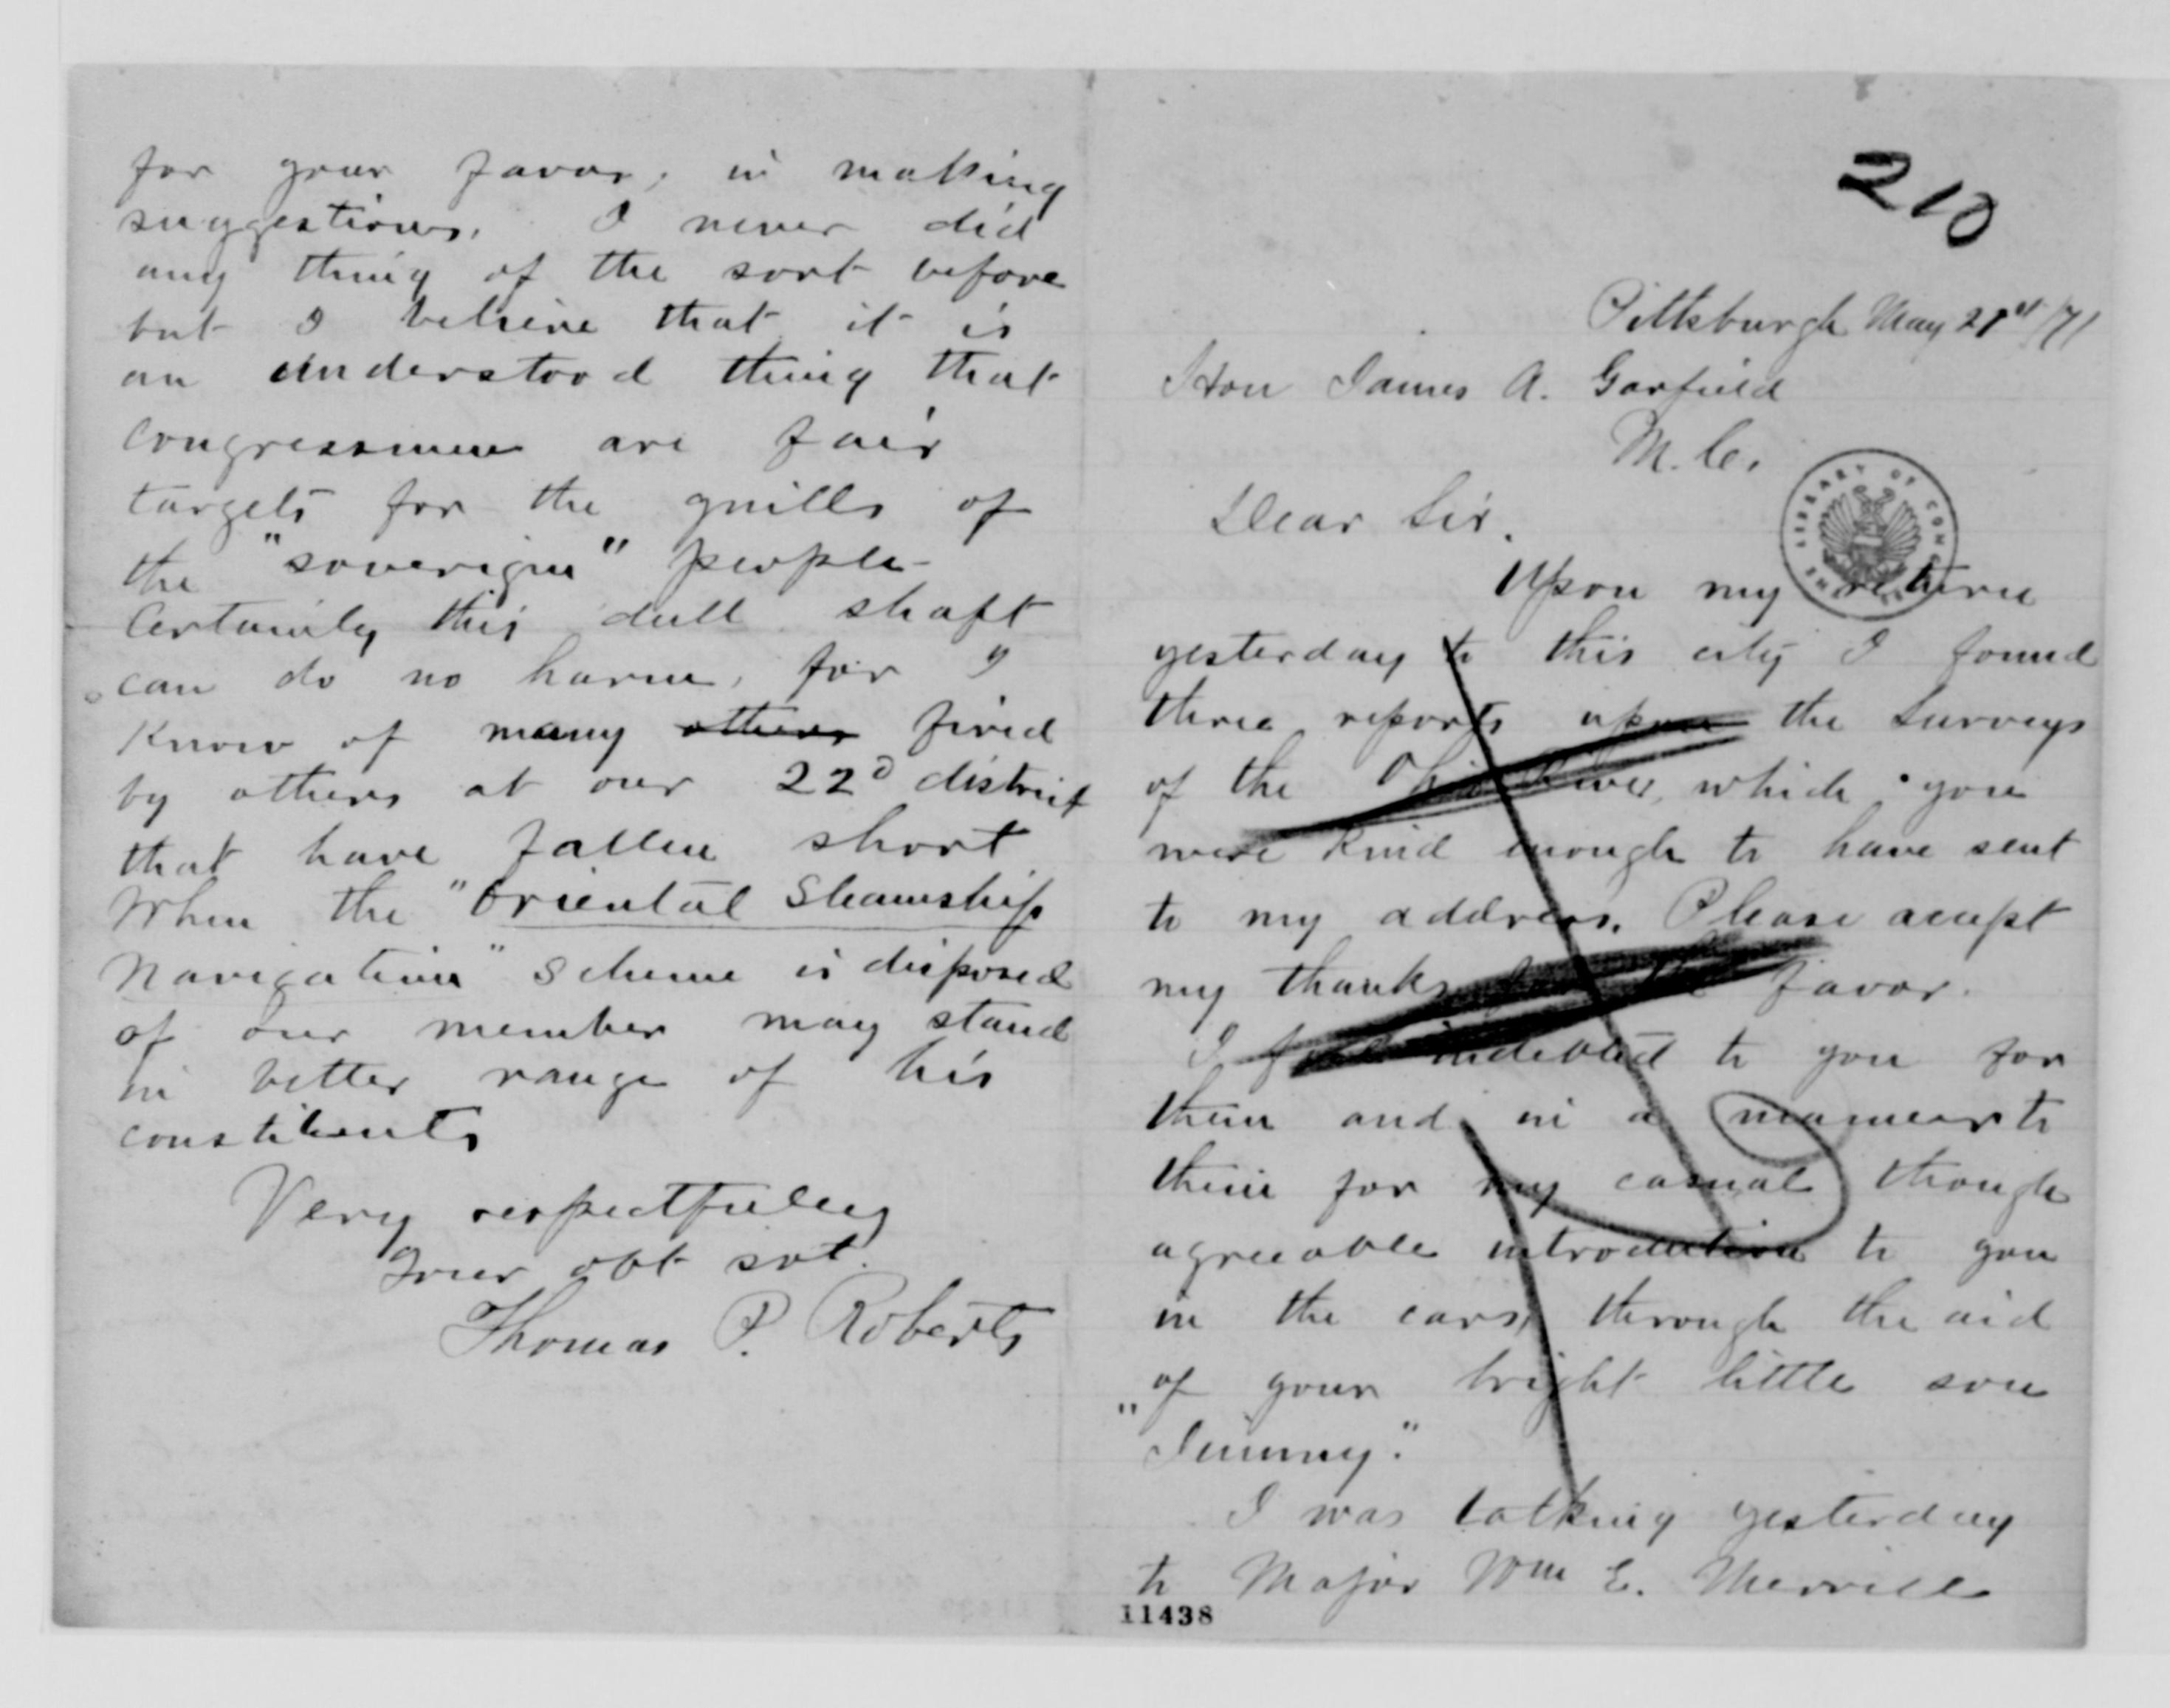 210
Pittsburgh May 21st /71
Hon James A. Garfield
M. C.
Dear Sir.
Upon my return
yesterday to this city I found
three reports upon the Surveys
of the Ohio River, which you
were kind enough to have sent
to my address. Please accept
my thanks for the favor.
I feel indebted to you for
them and in a manner to
them for my casual though
agreeable introduction to you
in the cars, through the aid
of your bright little son
"Jimmy."
I was talking yesterday
to Major Wm E. Merrill
11438
THE LIBRARY OF CONGRESS
for your favor, in making
suggestions. I never did
any thing of the sort before
but I believe that it is
an understood thing that
congressmen are fair
targets for the quills of
the "sovereign" people-
Certainly this dull shaft
can do no harm, for I
know of many others fired
by others at our 22d district
that have fallen short
When the "Oriental Steamship
Navigation" scheme is disposed
of our member may stand
in better range of his
constituents
Very respectfully
Your obt svt.
Thomas P. Roberts